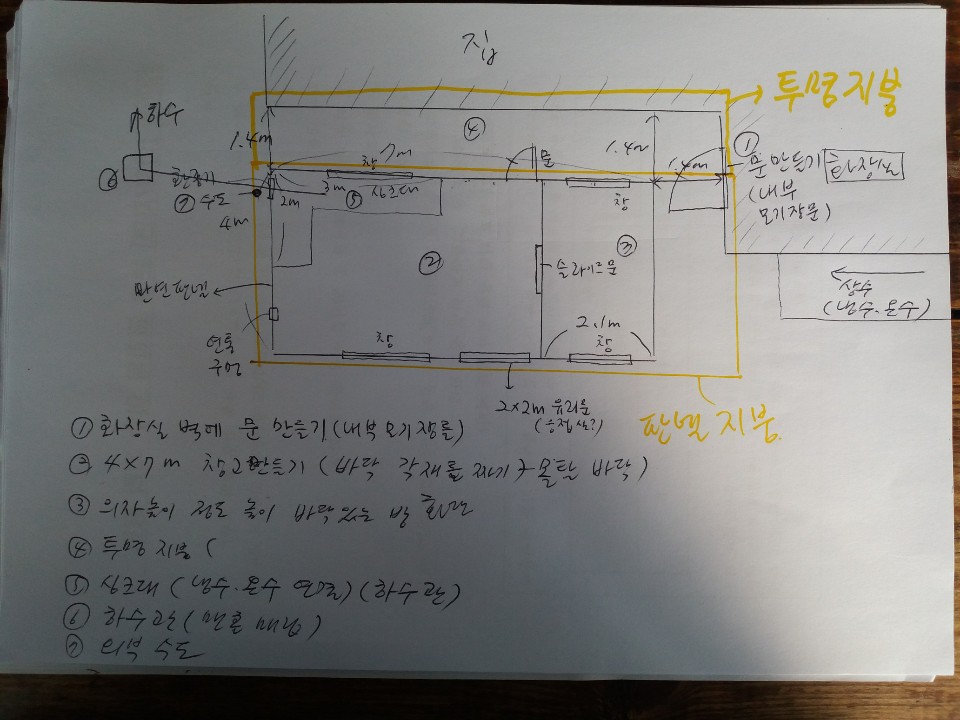 집
투명지붕
하수
1.4m
④
1.4m
1.4m
①
문 만들기
화장실
(내부
모기장문)
창
7m
문
⑥
환풍기
⑦ 수도
4m
2m
3m
⑤
싱크대
창
②
③
슬라이드문
상수
(냉수.온수)
연통
구멍
창
2.1m
창
2x2m 유리문
판넬 지붕
① 화장실 벽에 문 만들기 (내부 모기장문)
② 4x7m 창고만들기 (바닥 각재틀 짜기 → 몰탈 바닥)
③ 의자높이 정도 높이 바닥있는 방
④ 투명 지붕 (
⑤ 싱크대 (냉수.온수 연결) (하수관)
⑥ 하수관 (맨홀 매립)
⑦ 외부 수도